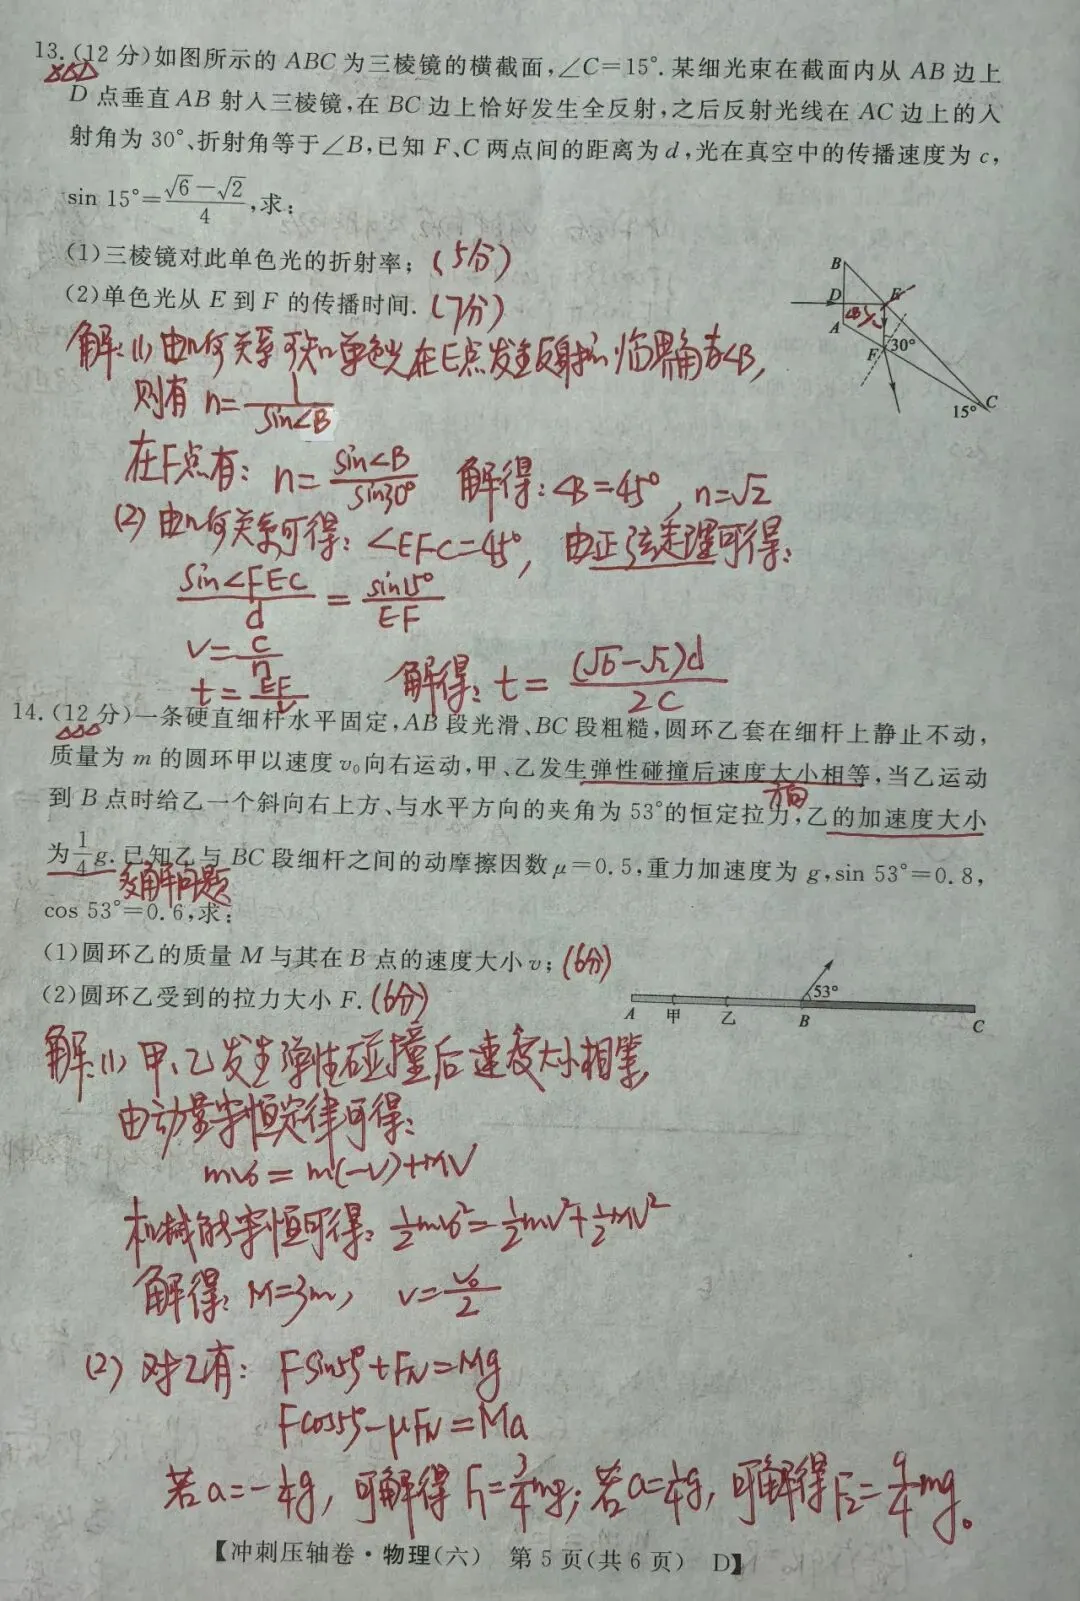 13.(12分)如图所示的ABC为三棱镜的横截面,∠C=15°.某细光束在截面内从AB边上
D点垂直AB射入三棱镜,在BC边上恰好发生全反射,之后反射光线在AC边上的入
射角为30°、折射角等于∠B,已知F、C两点间的距离为d,光在真空中的传播速度为c,
sin 15°=(√6-√2)/4,求:
(1)三棱镜对此单色光的折射率; (5分)
(2)单色光从E到F的传播时间. (7分)
B
D
E
A
∠B
F
30°
15°
C
解:(1)由几何关系可知单色光在E点发生全反射的临界角为∠B,
则有 n=1/sin∠B
在F点有: n=sin∠B/sin30° 解得:∠B=45°, n=√2
(2)由几何关系可得:∠EFC=45°, 由正弦定理可得:
sin∠FEC/d=sin15°/EF
v=c/n
t=EF/v 解得:t=(√6-√2)d/2c
14.(12分)一条硬直细杆水平固定,AB段光滑、BC段粗糙,圆环乙套在细杆上静止不动,
质量为m的圆环甲以速度v₀向右运动,甲、乙发生弹性碰撞后速度大小相等,当乙运动
到B点时给乙一个斜向右上方、与水平方向的夹角为53°的恒定拉力,乙的加速度大小
方向
为1/4 g.已知乙与BC段细杆之间的动摩擦因数μ=0.5,重力加速度为g,sin 53°=0.8,
多解问题
cos 53°=0.6,求:
(1)圆环乙的质量M与其在B点的速度大小v; (6分)
(2)圆环乙受到的拉力大小F. (6分)
53°
A 甲 乙 B C
解:(1)甲、乙发生弹性碰撞后速度大小相等,
由动量守恒定律可得:
mv₀=m(-v)+Mv
机械能守恒可得:½mv₀²=½mv²+½Mv²
解得:M=3m, v=v₀/2
(2)对乙有: Fsin53°+FN=Mg
Fcos53°-μFN=Ma
若a=-¼g,可解得F₁=¾mg;若a=¼g,可解得F₂=9/4mg。
【冲刺压轴卷·物理(六) 第5页(共6页) D】